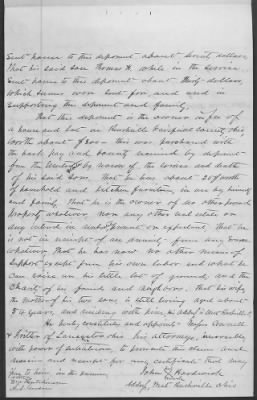 Sent home to this deponent about Seventy dollars
That his said son Thomas H. while in the service
Sent home to this deponent about thirty dollars,
which sums were used for and used in
supporting the deponent and family.
That this deponent is the owner in fee of
a house and lot in Rushville Fairfield County Ohio
worth about $200 - this was purchased with
the back pay and bounty received by deponent
from the United States by reason of the service and death
of his said sons. That he has about 25$ worth
of household and kitchen furniture, in use by himself
and family. That he is the owner of no other personal
property whatever, nor any other real estate or
any interest in any present or expectant, that he
is not in receipt of an annuity from any source
whatever, that he has now no other means of
support except from his own labor and what he
can raise on his little lot of ground, and the
charity of his friends and neighbors. That his wife
the mother of his two sons is still living aged about
54 years, and residing with him, at West Rushville O
He hereby constitutes and appoints Myers Connell
& of Lancaster Ohio his Attorneys, irrevocably
with power of substitution, to present this claim and
receive and receipt for any certificate that may
be issued in the premises
John Hardwick
Address, West Rushville Ohio